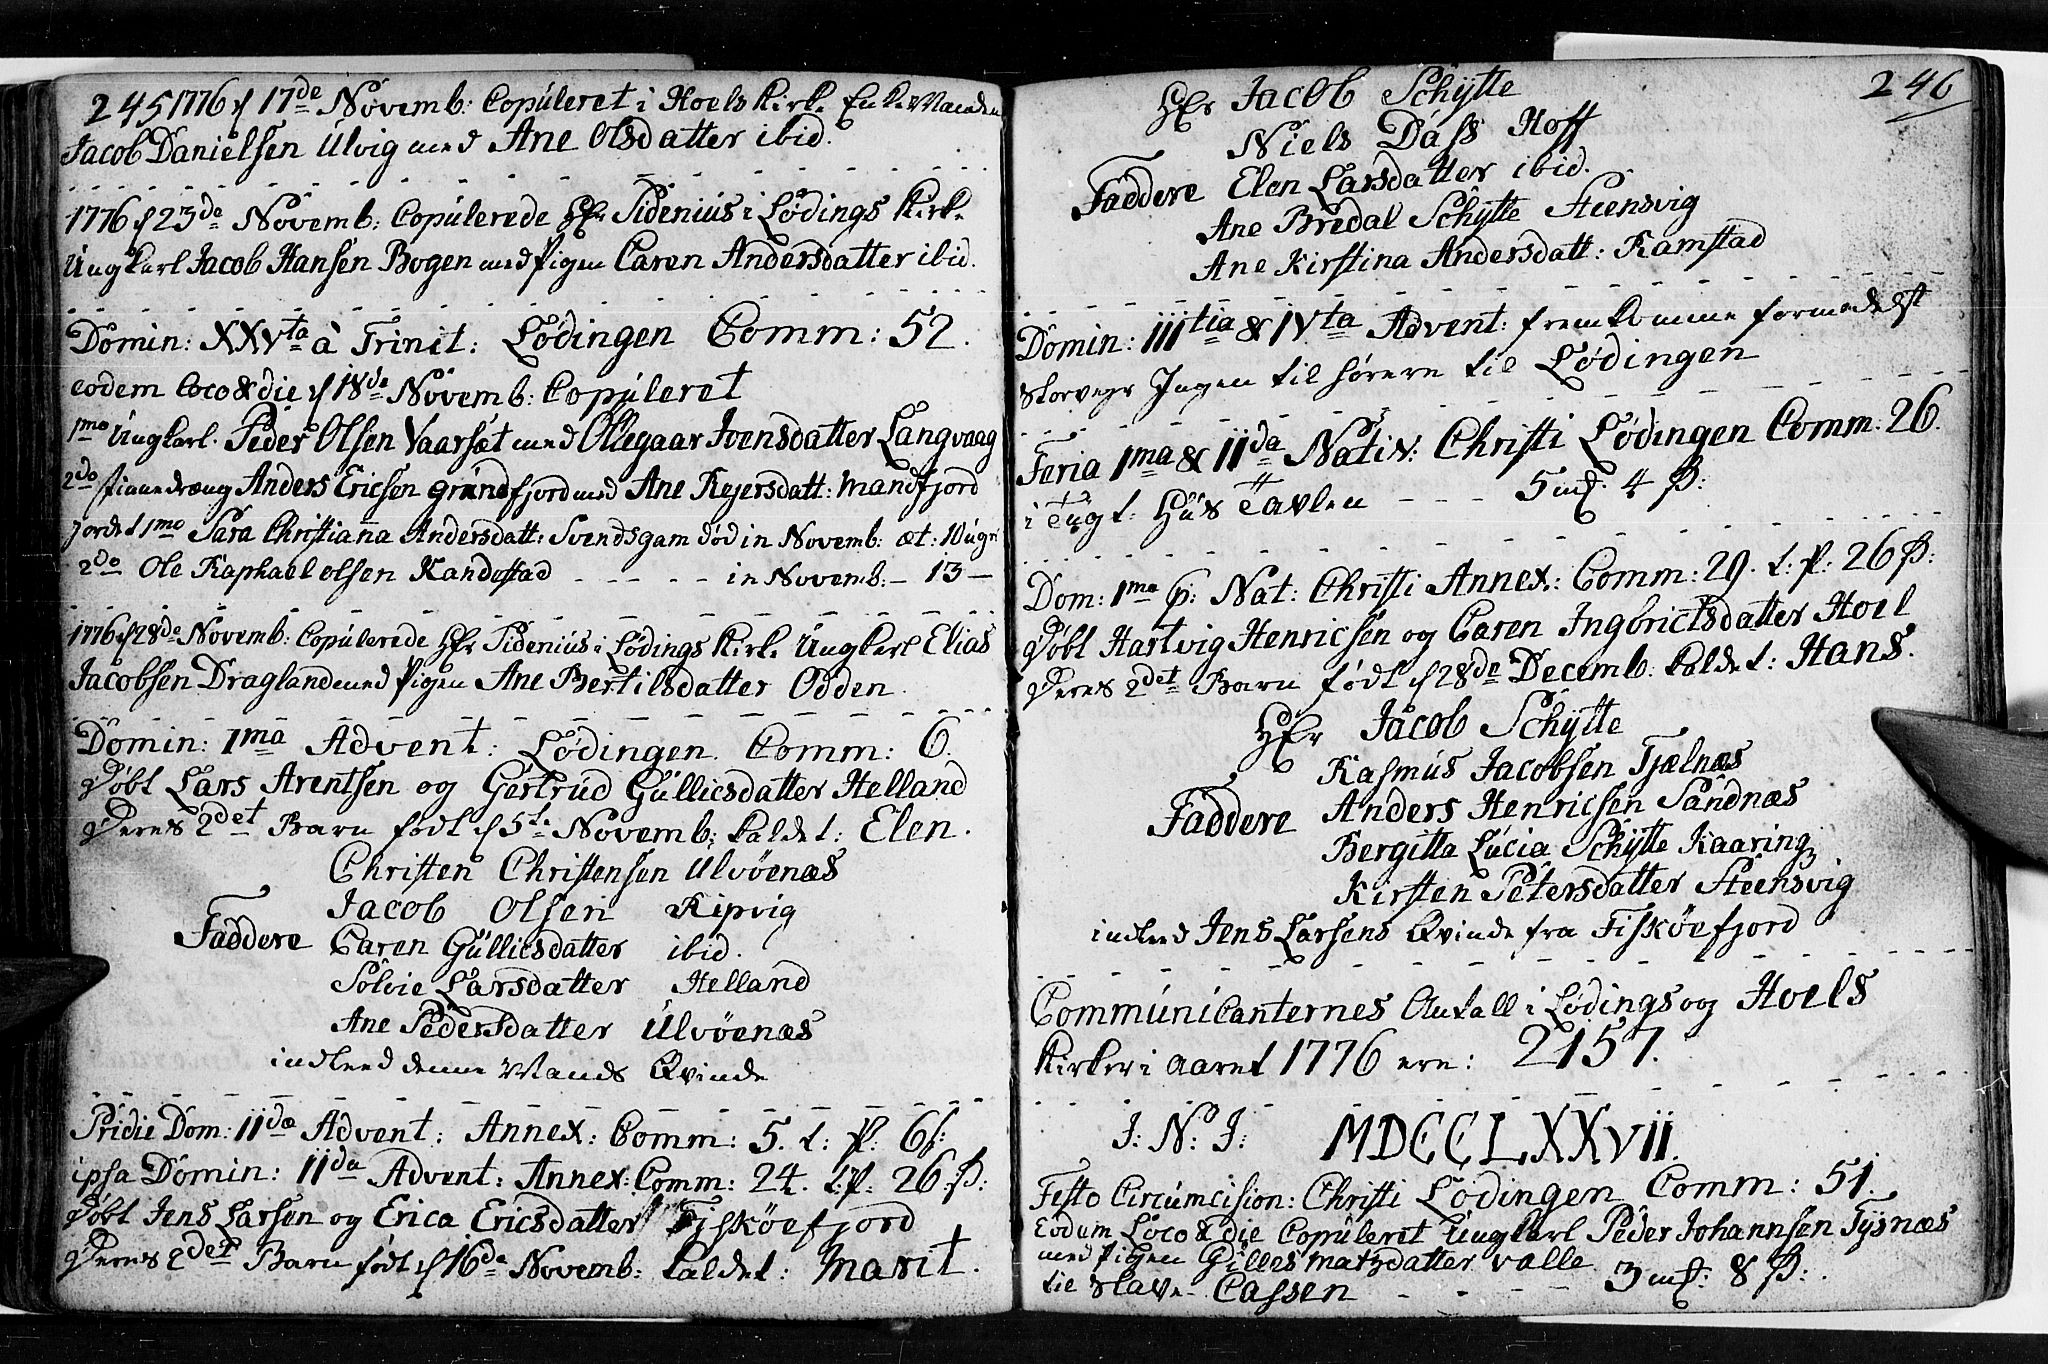 245 1776 d 17de Novemb: Copuleret i Hoels Kirke Enke Manden
Jacob Danielsen Ulvig med Ane Olsdatter ibid.
1776 d 23de Novemb: Copulerede Hr Sidenius i Lødings Kirke
Ungkarl Jacob Hansen Bogen med Pigen Caren Andersdatter ibid.
Domin: XXVta à Trinit: Lødingen Comm: 52.
eodem Loco & die d 18de Novemb: Copuleret
1mo Ungkarl. Peder Olsen Vaarsæt med Ollegaar Ivensdatter Langvaag
2do Finnedræng Anders Ericsen Grundfjord med Ane Rejersdatt: Mandfjord
Jordet 1mo Sara Christianna Andersdatt: Svendsgam død in Novemb: æt: 10 ugr
2do Ole Raphael Olsen Kandestad - - - - - in Novemb: - 13 -
1776 d 28de Novemb: Copulerede Hr Sidenius i Lødings Kirke Ungkarl Elias
Jacobsen Dragland med Pigen Ane Bertilsdatter Odden.
Domin: 1ma Advent: Lødingen Comm: 6.
Døbt Lars Arentsen og Gertrud Gullicsdatter Helland
Deres 2det Barn født d 5te Novemb: kaldet: Elen.
Christen Christensen Ulvöenæs
Jacob Olsen Kipvig
Faddere Caren Gullicsdatter ibid.
Solvie Larsdatter Helland
Ane Pedersdatter Ulvöenæs
indleed denne Mands Qvinde
Pridie Dom: IIdæ Advent: Annex: Comm: 5. t: P: 6 ß:
ipsa Domin: IIda Advent: Annex: Comm: 24. t: P: 26 ß:
Døbt Jens Larsen og Erica Ericsdatter Fiskøefjord
Deres 2det Barn født d 16de Novemb: kaldet: Marit.
246
Hr Jacob Schytte
Niels Dass Hoff
Faddere Elen Larsdatter ibid.
Ane Bredal Schytte Steensvig
Ane Kirstina Andersdatt: Ramstad
Domin: IIItia & IVta Advent: fremkomme formedelst
Storvejr Ingen tilhørere til Lødingen
Feria 1ma & IIda Nativ: Christi Lødingen Comm: 26.
i Tugt: Huus Tavlen - - - - 5 mk: 4 ß:
Dom: 1ma p: Nat: Christi Annex: Comm: 29. t: P: 26 ß:
Døbt Hartvig Henricsen og Caren Ingbrictsdatter Hoel
Deres 2det Barn født d 28de Decemb: kaldet: Hans.
Hr Jacob Schytte
Rasmus Jacobsen Tjælnæs
Faddere Anders Henricsen Sandnæs
Bergitta Lucia Schytte Kaaring
Kirsten Petersdatter Steensvig
indleed Jens Larsens Qvinde fra Fiskøefjord
Communicanternes Antall i Lødings og Hoels
Kirker i aaret 1776 ere: 2157.
I: N: J: MDCCLXXVII.
Festo Circumcision: Christi Lødingen Comm: 51.
Eodem Loco & die Copuleret Ungkarl Peder Johannsen Tysnæs
med Pigen Gilles Matzdatter Valle
til Slave-Cassen - - - - 3 mk: 8 ß: